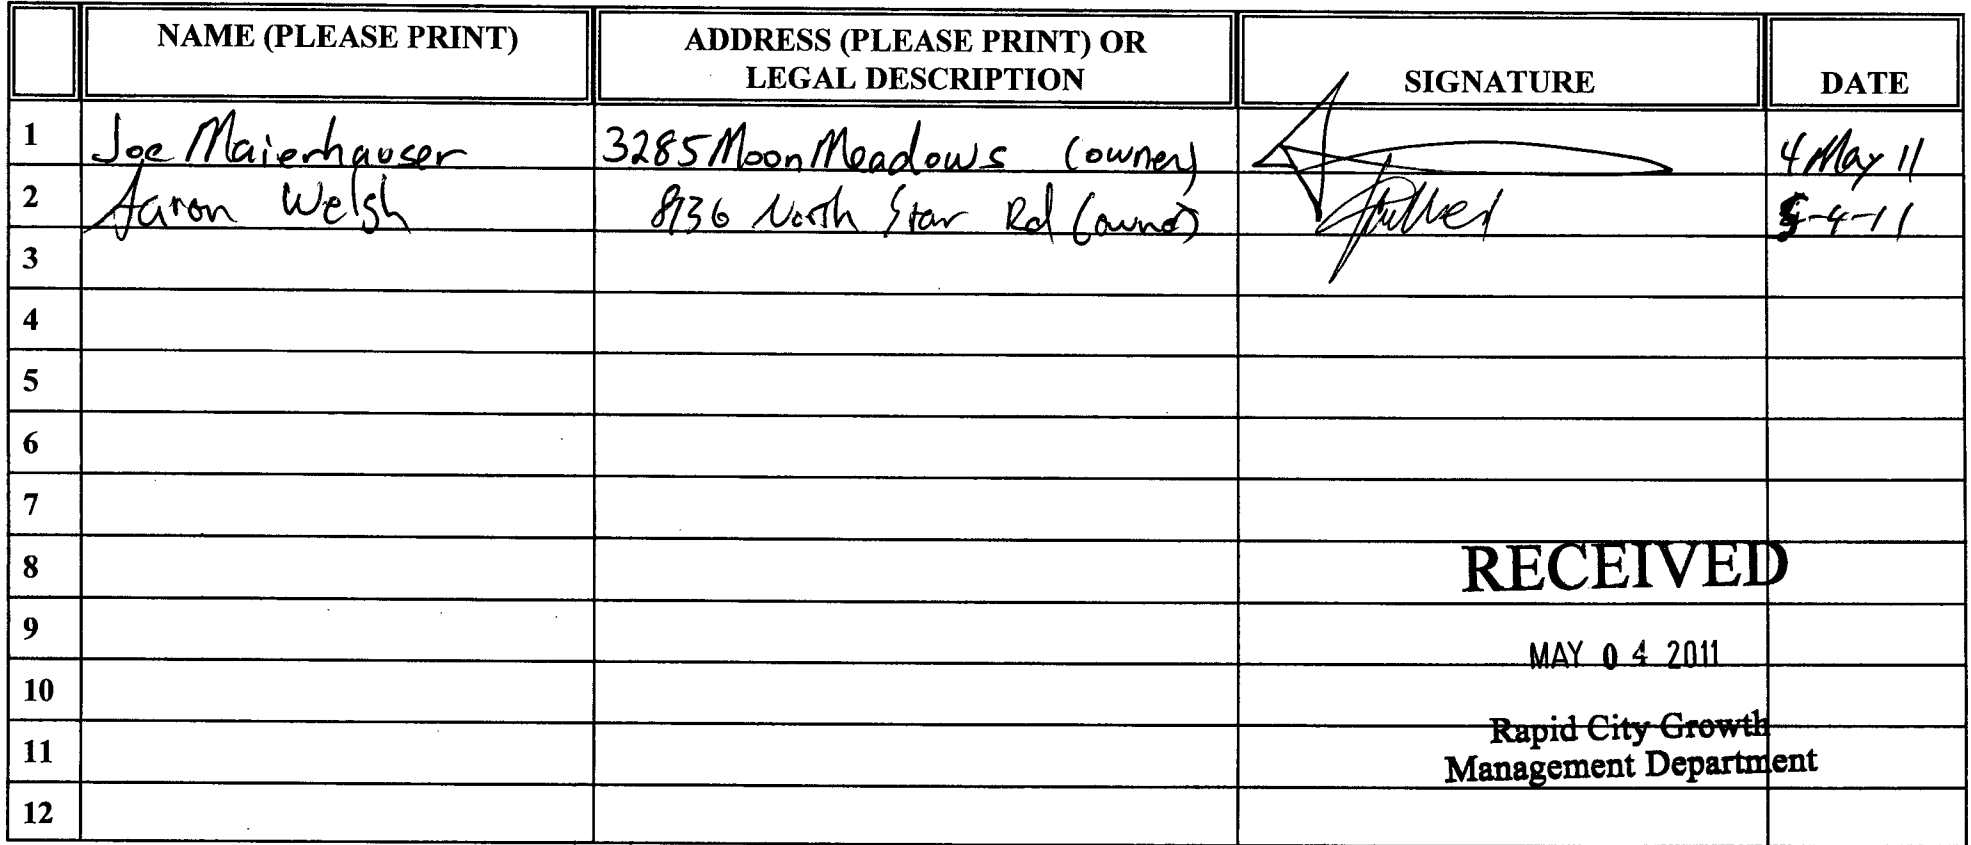 NAME (PLEASE PRINT) ADDRESS (PLEASE PRINT) OR
LEGAL DESCRIPTION SIGNATURE DATE
1 Joe Maierhauser 3285 Moon Meadows (owner) 4 May 11
2 Aaron Welsh 8936 North Star Rd (owner) 5-4-11
3
4
5
6
7
8 RECEIVED
9 MAY 04 2011
10
Rapid City Growth
11 Management Department
12